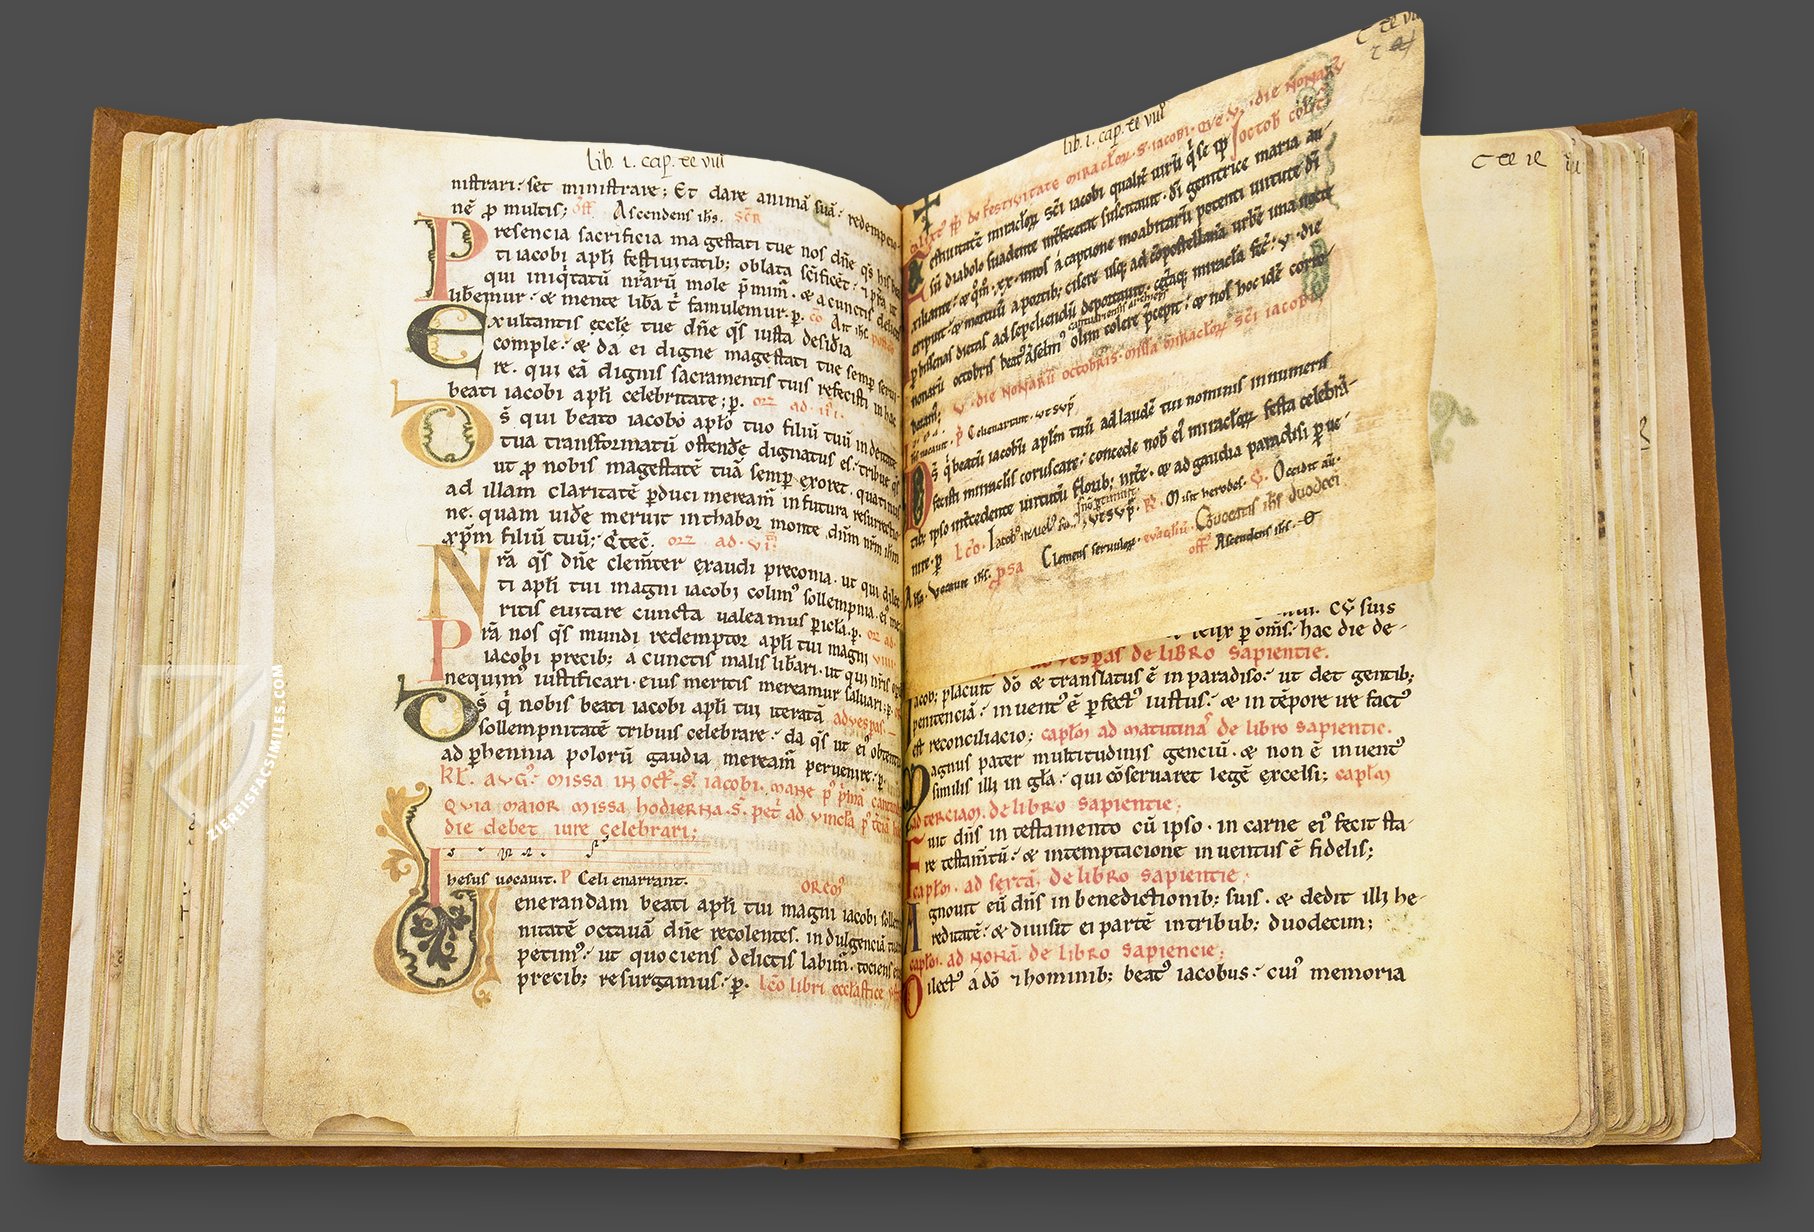 lib. i. cap. xx viii
nistrari: set ministrare; Et dare animā suā: redempcio-
nē p multis; off. Ascendens ihs. scr̄
Presencia sacrificia magestati tue nos dn̄e qs̄
ti iacobi apl̄i festiuitatib; oblata sc̄ificēt:
qui iniq̇tatū nr̄arū mole p̄mim̄. & a cunctis
liƀemur. & mente liƀa t̄ famulemur. p. cō Ait ihc
Exultantis eccl̄e tue dn̄e qs̄ iusta desidīa
comple: & da ei digne magestati tue semp
re. qui eā dignis sacramentis tuis refecisti in hac
beati iacobi apl̄i celebritate; p. or̄ ad.
Ds̄ qui beato iacobo apl̄o tuo filiū tuū in deitate
tua transformatū ostendēe dignatus es: tribue
ut p nobis magestatē tuā semp exoret. quatinus
ad illam claritatē p̄duci meream̄ in futura resurrectio
ne. quam uide meruit in thabor monte dn̄m nr̄m ihm
xp̄m filiū tuū; Q̇tec̄. or̄ ad. vi.
Nr̄a qs̄ dn̄e clem̄ter exaudi preconia. ut qui
ti apl̄i tui magni iacobi colim' sollempnia. ei' me
ritis euitare cuncta ualeamus p̄icl̄a. p. or̄ ad.
Pr̄a nos qs̄ mundi redemptor apl̄i tui magni
iacobi precib; a cunctis malis liƀari. ut qui
nequim' iustificari. eius meritis mereamur saluari; p.
Ds̄ q̇ nobis beati iacobi apl̄i tui iteratā ad vesp̄as
sollempnitatē tribuis celebrare: da qs̄ ut ei'
ad p̄hennia polorū gaudia meream̄ peruenire. p.
Kl. avg'. missa in oct. s. iacobi. mane p' p̄mā
Qvia maior missa hodierna s. pet̄ ad vincl̄a p'
die debet iure celebrari;
Ihesus uocauit. P Celi enarrant. 
Uenerandam beati apl̄i tui magni iacobi
nitatē octauā dn̄e recolentes. indulgenciā
petim': ut quociens delictis labim̄. tociens
precib; resurgamus: p. lc̄o libri eccl̄astice
lib. i. cap. xx viii
de festivitate miracl̄oꝝ. s. iacobi. qve v. die nonaꝝ
octob̄ colit̄
estiuitatē miracl̄oꝝ sc̄i iacobi qualit̄ uirū q̇ se ip̄
sū diabolo suadente int̄fecerat suscitauit. di genitrice maria au
xiliante: & qm̄. xx. uiros a captione moabitarū potenti uirtute di
eripuit: & mortuū a portib; cisere usq; ad cōpostellanā urbē una nocte
p bissenas dietas ad sepeliendū deportauit. cet̄aq; miracl̄a fec̄. v. die
nonarū octobris beat' ā̄selm' olim colere p̄cepit: & nos hoc idē corro-
beram';
v. die nonarū octobris. missa miracl̄oꝝ sc̄i iacobi.
uocauit. p̄ Celi enarrant. ut sup̄
Ds̄ q̇ beatū iacobū apl̄m tuū ad laudē tui nominis innumeris
fecisti miraclis coruscare: concede nob̄ ei' miracl̄oꝝ festa celebrā-
tib; ipso int̄cedente uirtutū florib; nit̄e. & ad gaudia paradisi p ue-
nire. p lc̄o. Iacob' ut sup̄. R̄. Misit herodes. V. Occidit au.
All'a. Vocauit ihs. p̄sa Clemens seruuloꝝ. evāgliū. Conuocatis ihs duodeci
off̄ Ascendens ihs. &
C xx ix
cū suis
p om̄s: hac die de-
ad vesp̄as de libro sapientie.
Iacob; placuit dō & translatus ē in paradiso: ut det gentib;
penitenciā: inuent' ē p̄fect' iustus: & in tēpore ire fact'
est reconciliacio; capl̄m ad matutinas̄ de libro sapientie.
Magnus pater multitudinis genciū. & non ē inuent'
similis illi in gl̄a: qui cōseruaret legē excelsi; capl̄m
ad terciam. de libro sapientie;
Fuit dn̄s in testamento cū ipso. in carne ei' fecit sta-
re testam̄tū: & in temptacione inuentus ē fidelis;
capl̄m. ad sextā. de libro sapientie;
Agnouit eū dn̄s in benedictionib; suis. & dedit illi he-
reditatē: & diuisit ei partē in tribub; duodecim;
capl̄m. ad nonā. de libro sapiencie;
Dilect' a dō & hominib; beat' iacobus: cui' memoria
ZIEREISFACSIMILES.COM